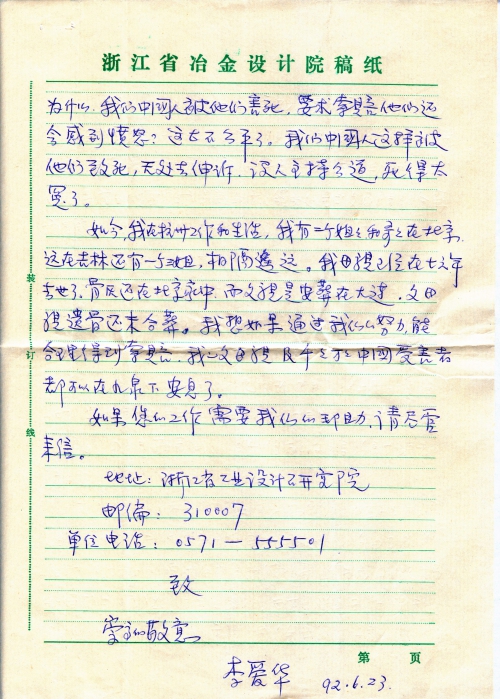 浙江省冶金设计院稿纸
为什么，我们中国人被他们害死，要求索赔他们还
会感到愤怒？这太不公平了。我们中国人这样被
他们致死，无处去伸诉，没人主持公道，死得太
冤了。
如今，我在杭州工作和生活，我有二个姐姐和哥哥在北京，
远在吉林还有一个姐，相隔遥远。我母親已经在七六年
去世了，骨灰还在北京家中，而父親是安葬在大连，父母
親遗骨还未合葬。我想如果通过我们的努力，能
合理得到索赔，我父母親及千千万万中國受害者
都可以在九泉下安息了。
如果您们工作需要我们的帮助，请尽管
来信。
地址：浙江省工业设计研究院
邮编：310007
单位电话：0571—555501
致
崇高的敬意
装
订
线
第 页
李爱华 92.6.23.